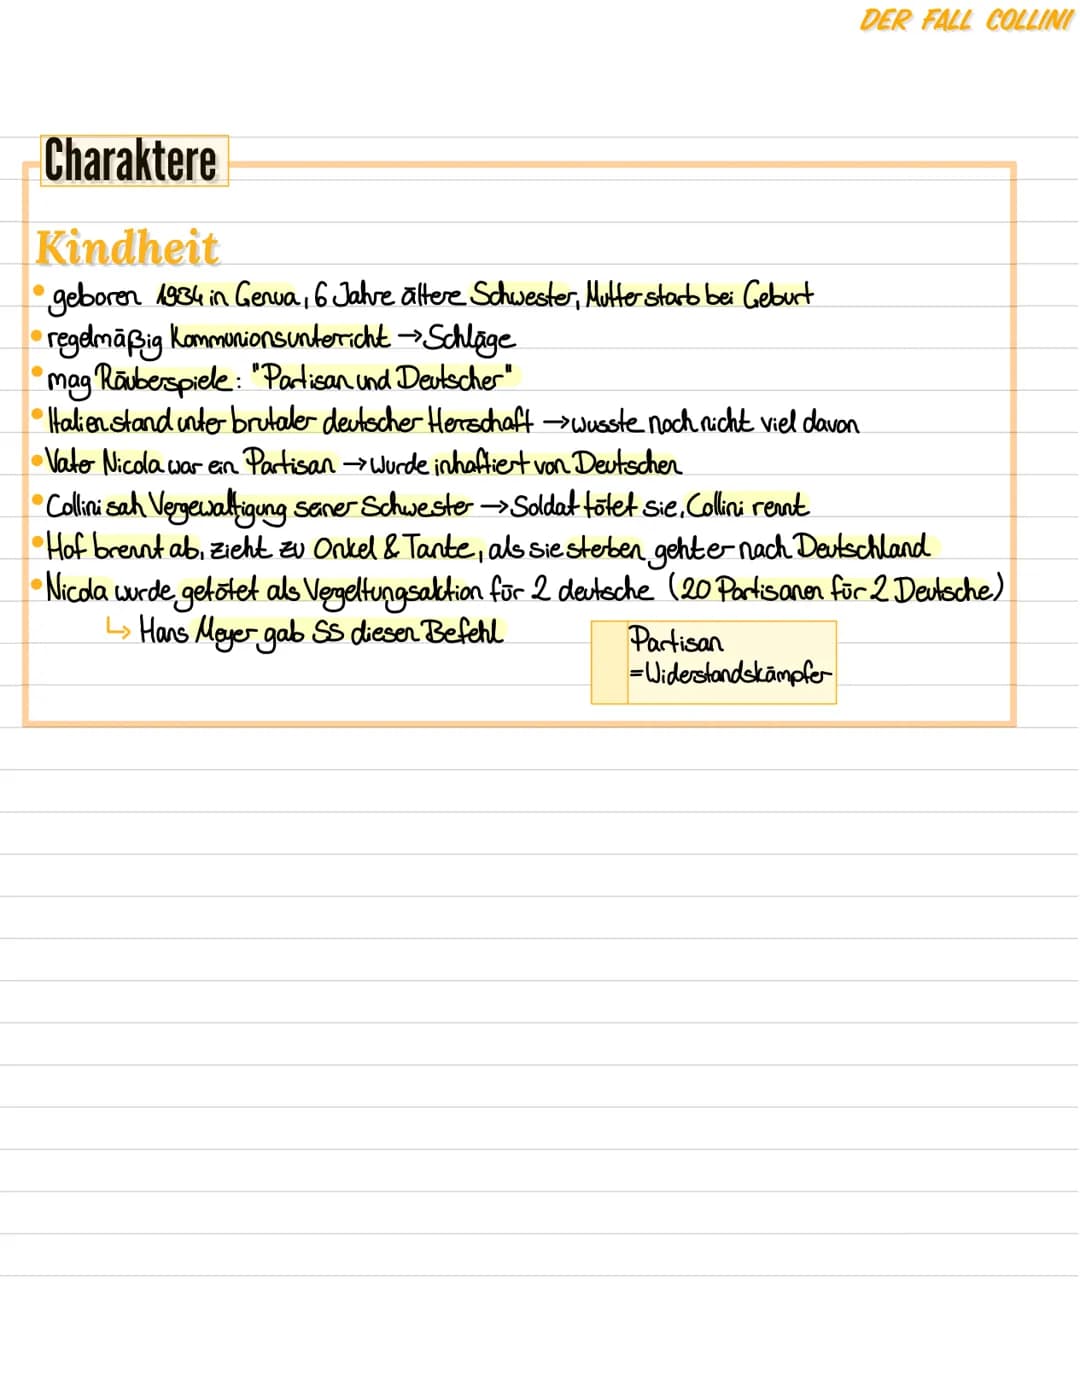 DER FALL COLLINI
Charaktere
Kindheit
• geboren 1934 in Genua, 6 Jahre ältere Schwester, Mutter starb bei Geburt
• regelmäßig Kommunionsunterricht → Schläge
• mag Räuberspiele: "Partisan und Deutscher"
• Italien stand unter brutaler deutscher Herrschaft → wusste noch nicht viel davon
• Vater Nicola war ein Partisan → wurde inhaftiert von Deutschen
• Collini sah Vergewaltigung seiner Schwester → Soldat tötet sie, Collini rennt
• Hof brennt ab, zieht zu Onkel & Tante, als sie sterben geht er nach Deutschland
• Nicola wurde getötet als Vergeltungsaktion für 2 deutsche (20 Partisanen für 2 Deutsche)
↳ Hans Meyer gab SS diesen Befehl
Partisan
=Widerstandskämpfer